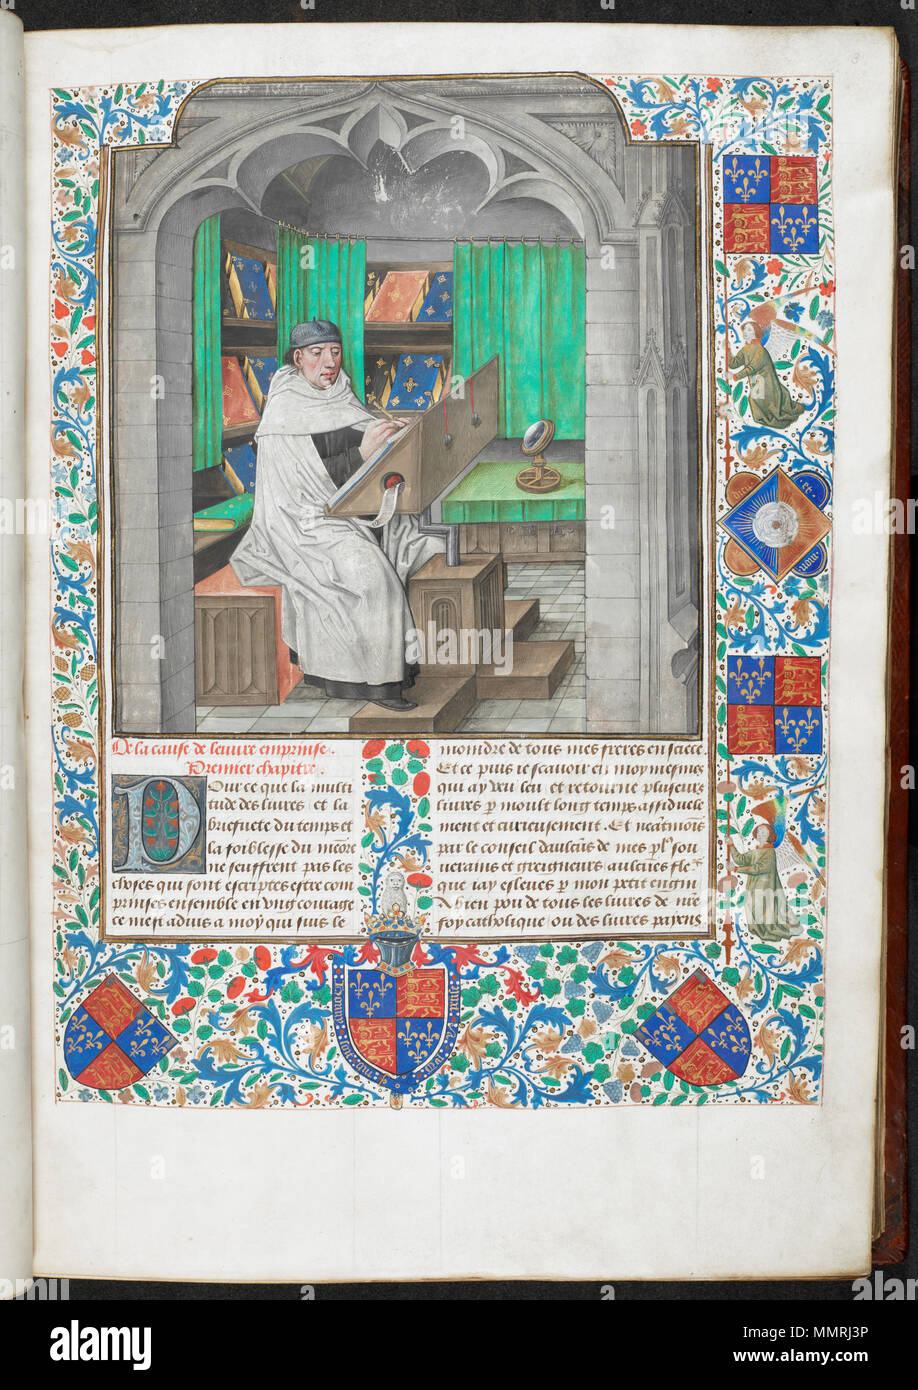 3
De la cause de leuure emprinse.
Premier chapitre.
Pour ce que la multi
tude des liures et la
briefuete du temps et
la foiblesse du
ne seuffrent pas les
choses qui sont escriptes estre com
prinses ensemble en vng courage
ce mest aduis a moy qui suis le
moindre de tous mes freres en
Et ce puis ie scauoir en moy mesmes
qui ay veu leu et retourne pluseurs
liures p moult long temps assiduele
ment et curieusement. Et neãtmoĩs
par le conseil daulcũs de mes plꝰ sou
uerains et greigneurs aulcũes
que iay esleues p mon petit engin
A bien pou de tous les liures de nre
foy catholique ou des liures paiens
dieu et mon
Honny soit qui mal y pense
alamy
Image ID: MMRJ3P
www.alamy.com